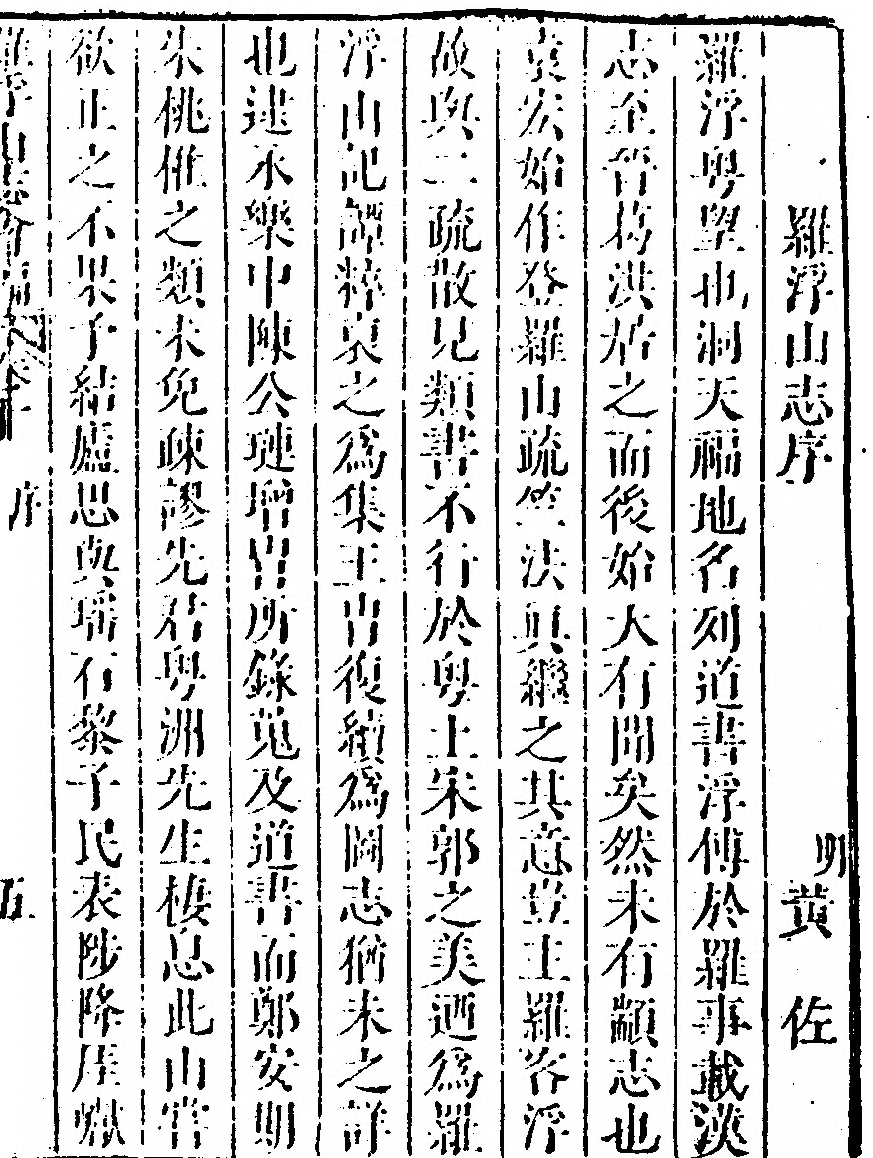 羅浮山志序
明黃佐
羅浮粵望也洞天福地名列道書浮傅於羅事載漢
志至晉葛洪居之而後始大有聞矣然未有顓志也
袁宏始作登羅山疏竺法眞繼之其意豈主羅客浮
故與二疏散見類書不行於粵土宋郭之美迺爲羅
浮山記譚粹裒之爲集王冑復續爲圖志猶未之詳
也逮永樂中陳公璉增冑所錄蒐及道書而鄭安期
朱桃椎之類未免疎謬先君粵洲先生棲息此山嘗
欲正之不果予結廬思與瑤石黎子民表陟降厓嶽
羅浮山志會編
序
五